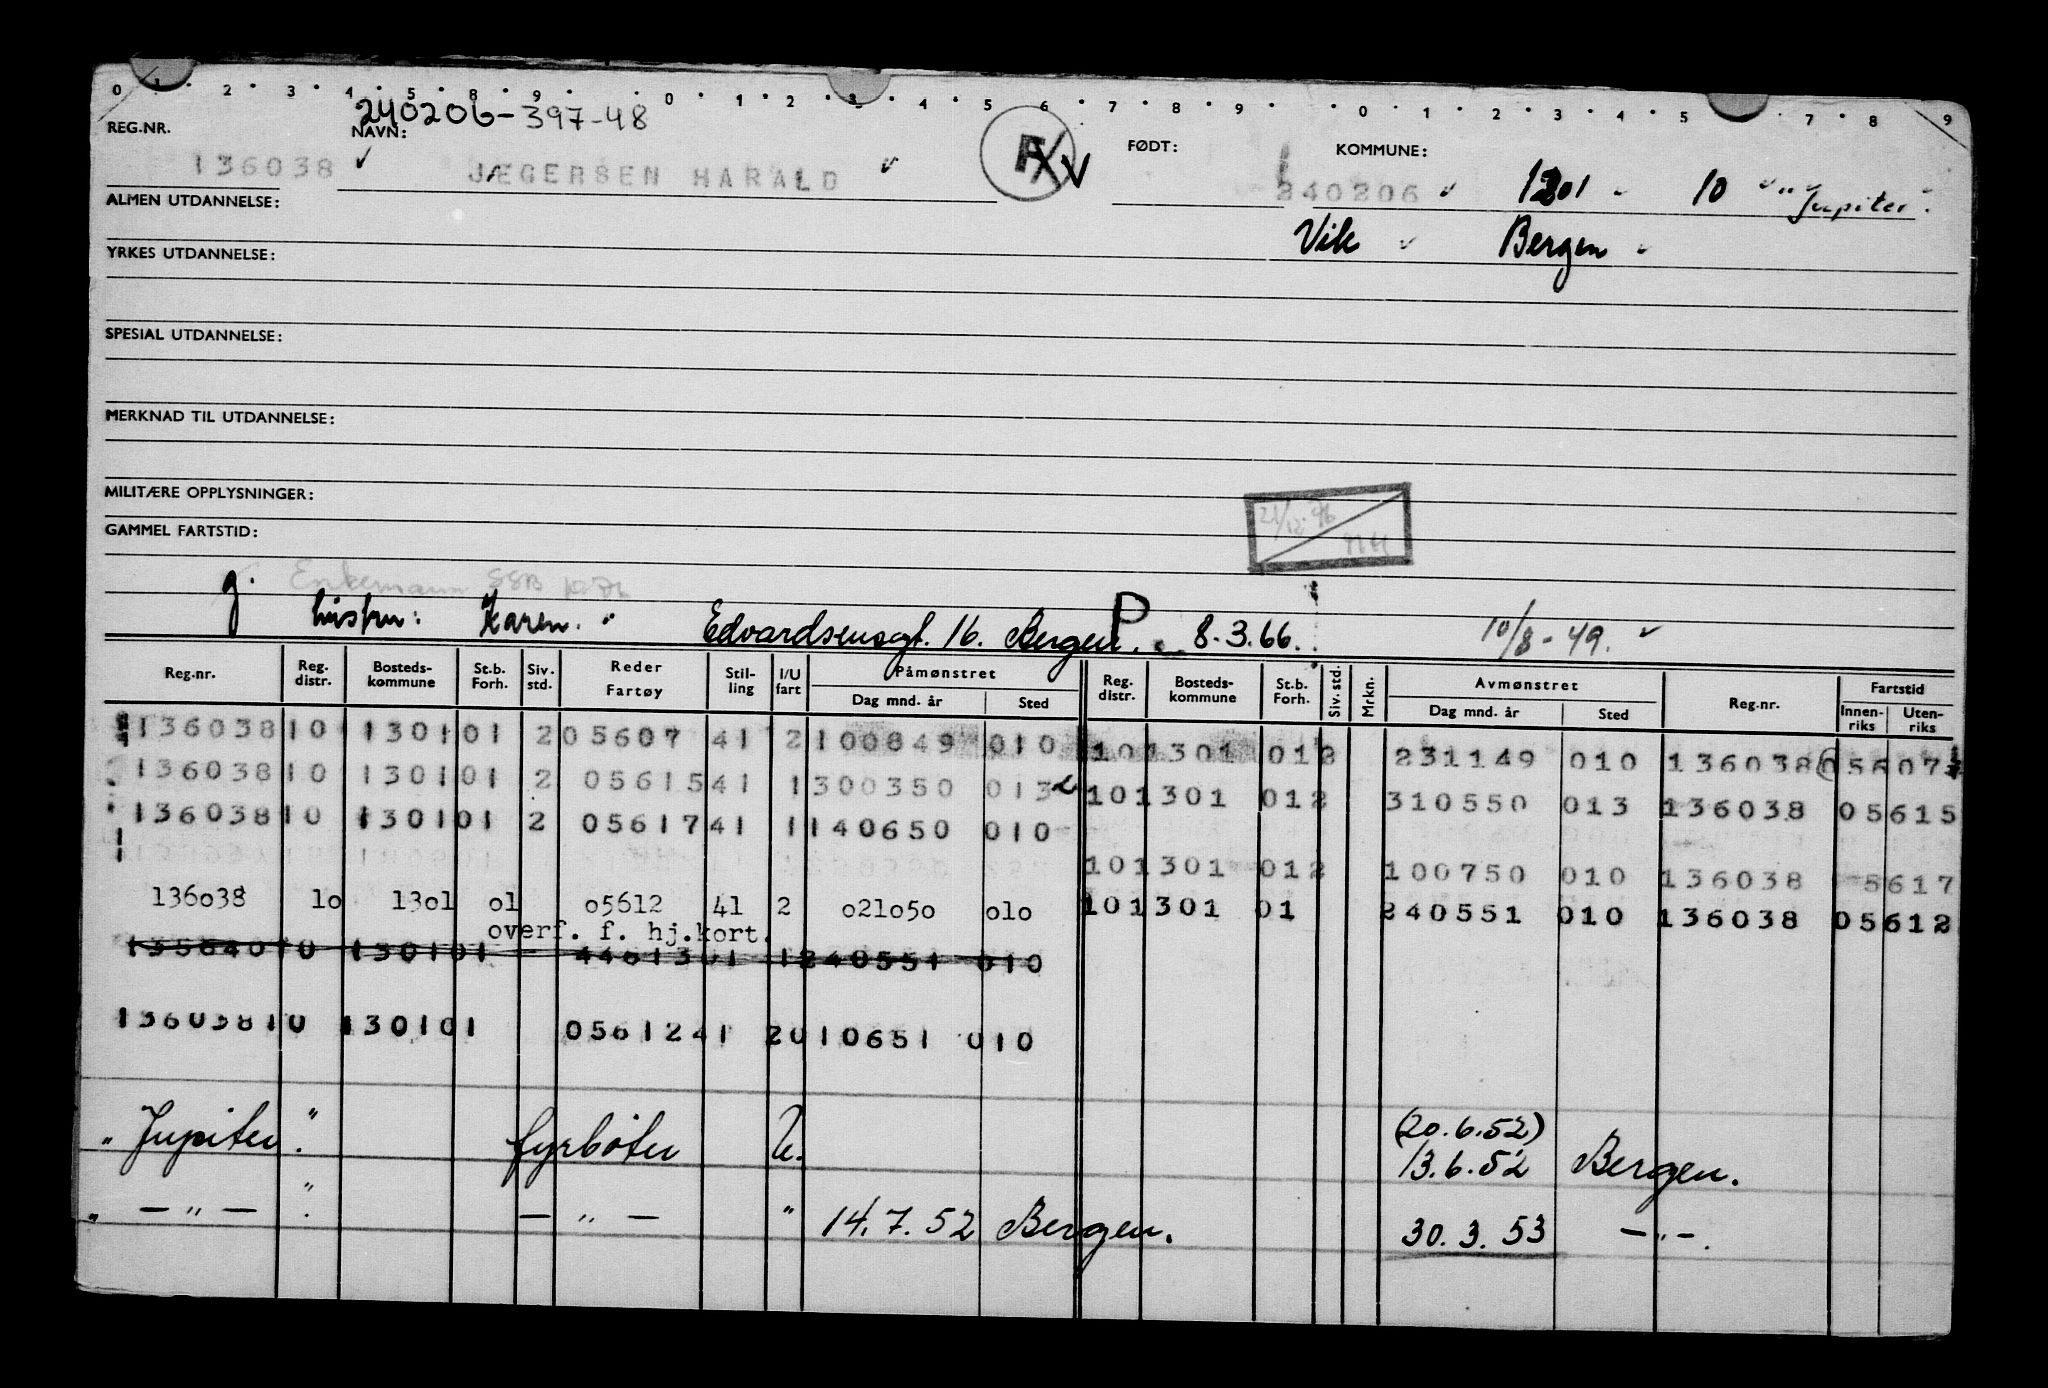 0 1 2 3 4 5 8 9 0 1 2 3 4 5 6 7 8 9 0 1 2 3 4 5 7 8 9
240206-397-48
REG.NR. NAVN: FØDT: KOMMUNE:
136038 ✓ JÆGERSEN HARALD ✓ 240206 ✓ 1301 10 "Jupiter".
ALMEN UTDANNELSE: Vik Bergen
YRKES UTDANNELSE:
SPESIAL UTDANNELSE:
MERKNAD TIL UTDANNELSE:
MILITÆRE OPPLYSNINGER:
21/12.96
GAMMEL FARTSTID:
g. Enkemann SSB
hustru: Karen. Edvardsensgt. 16. Bergen. P 8.3.66. 10/8-49. ✓
Reg.nr. Reg. distr. Bosteds-kommune St.b. Forh. Siv. std. Reder Fartøy Stil-ling I/U fart Påmønstret Dag mnd. år Sted Reg. distr. Bosteds-kommune St.b. Forh. Siv. std. Mrkn. Avmønstret Dag mnd. år Sted Reg.nr. Fartstid Innen-riks Uten-riks
136038 10 1301 01 2 05607 41 2 100849 010 10 1301 01 2 231149 010 136038 05607
136038 10 1301 01 2 05615 41 1 300350 013 10 1301 01 2 310550 013 136038 05615
136038 10 1301 01 2 05617 41 1 140650 010
10 1301 01 2 100750 010 136038 5617
136o38 1o 13o1 o1 o5612 41 2 o21o5o o1o 10 1301 01 240551 010 136038 05612
overf. f. hj.kort.
135640 10 1301 01 44613 01 1 240551 010
136038 10 1301 01 05612 41 2 010651 010
"Jupiter". fyrbøter U. (20.6.52)
13.6.52 Bergen.
" — " — ". — " — " 14.7.52 Bergen. 30.3.53 — " —.